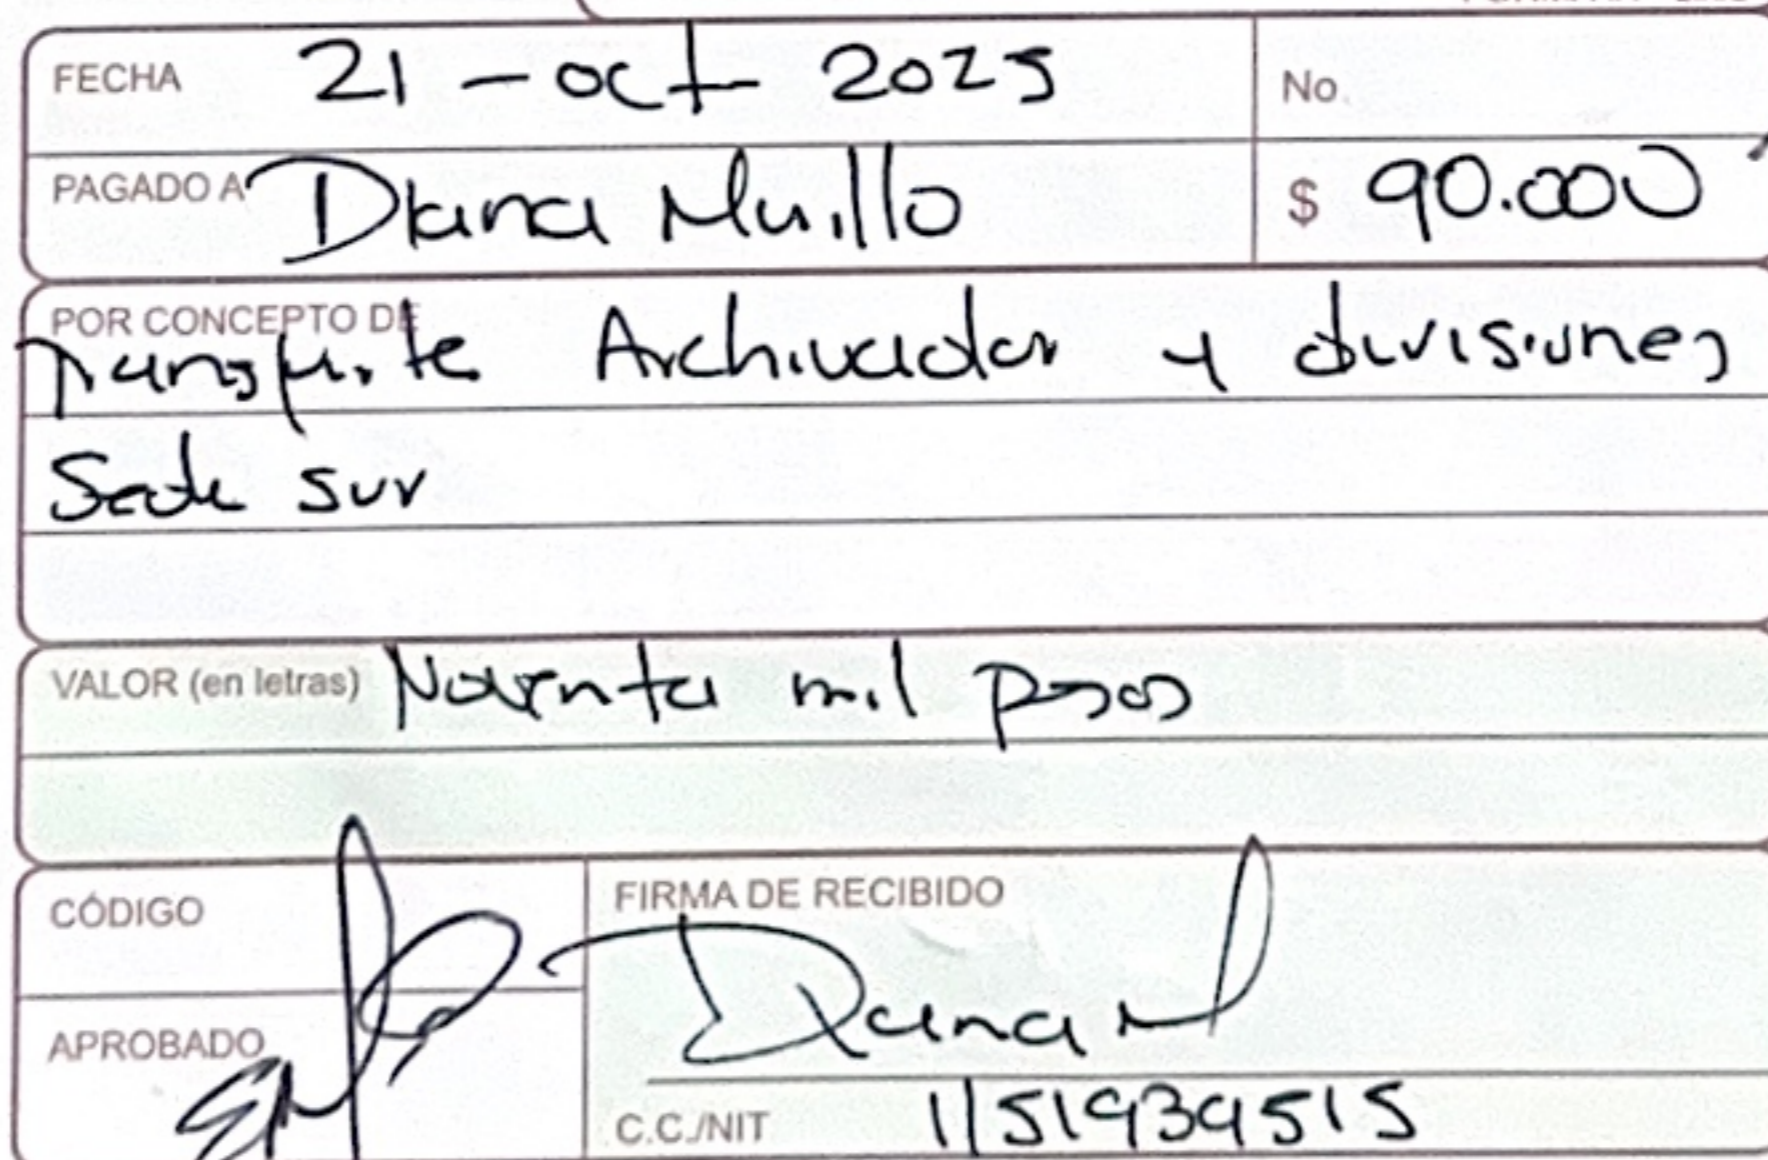 FECHA 21 - oct 2025 No.
PAGADO A Diana Murillo $ 90.000
POR CONCEPTO DE
Transporte Archivador y divisiones
Sede sur
VALOR (en letras) Noventa mil pesos
CÓDIGO
FIRMA DE RECIBIDO
Diana M
APROBADO
C.C./NIT 1151939515